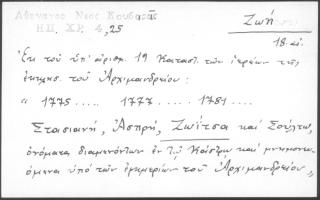 Αθηναγος Νεος Κουβαρᾶς
ΗΠ. ΧΡ. 4,25
Ζωή
18 αἰ.
Ἐκ τοῦ ὑπ' ἀριθμ. 19 Καταστ. τῶν ἱερέων τῆς
τοῦ Ἀρχιμανδρείου :
" 1775 ..... 1777 ..... 1781 ....
Στασιανή, Ἀσπρή, Ζωίτσα καί Σούστω,
ὀνόματα διαμενόντων ἐν τῷ Κάστρῳ καί μνημονευ-
όμενα ὑπό τῶν ἐφημερίων τοῦ Ἀρχιμανδρείου "